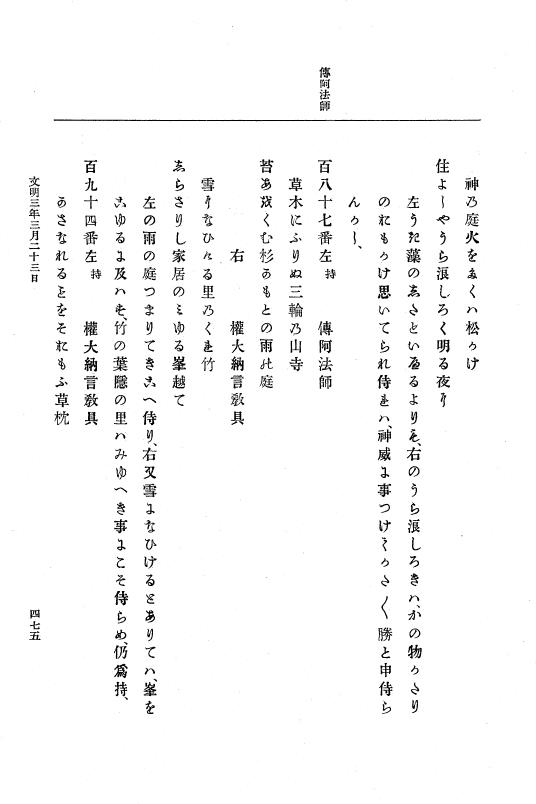 傳阿法師
神乃庭火をたくハ松かけ
住よしやうら浪しろく明る夜に
左うた藻のしたといへるよりも、右のうら浪しろきハ、かの物かたり
のおもかけ思いてられ侍れハ、神威に事つけてかた〱勝と申侍ら
んかし、
百八十七番左 持 傳阿法師
草木にふりぬ三輪乃山寺
苔 くむ杉のもとの雨の庭
右 權大納言敎具
雪になひける里乃くれ竹
しらさりし家居のミゆる峯越て
左の雨の庭つまりてきこへ侍り、右又雪になひけるとありてハ、峯を
こゆるに及ハす、竹の葉隱の里ハみゆへき事にこそ侍らめ、仍爲持、
百九十四番左 持 權大納言敎具
さなれる をそおもふ草枕
文明三年三月二十三日
四七五